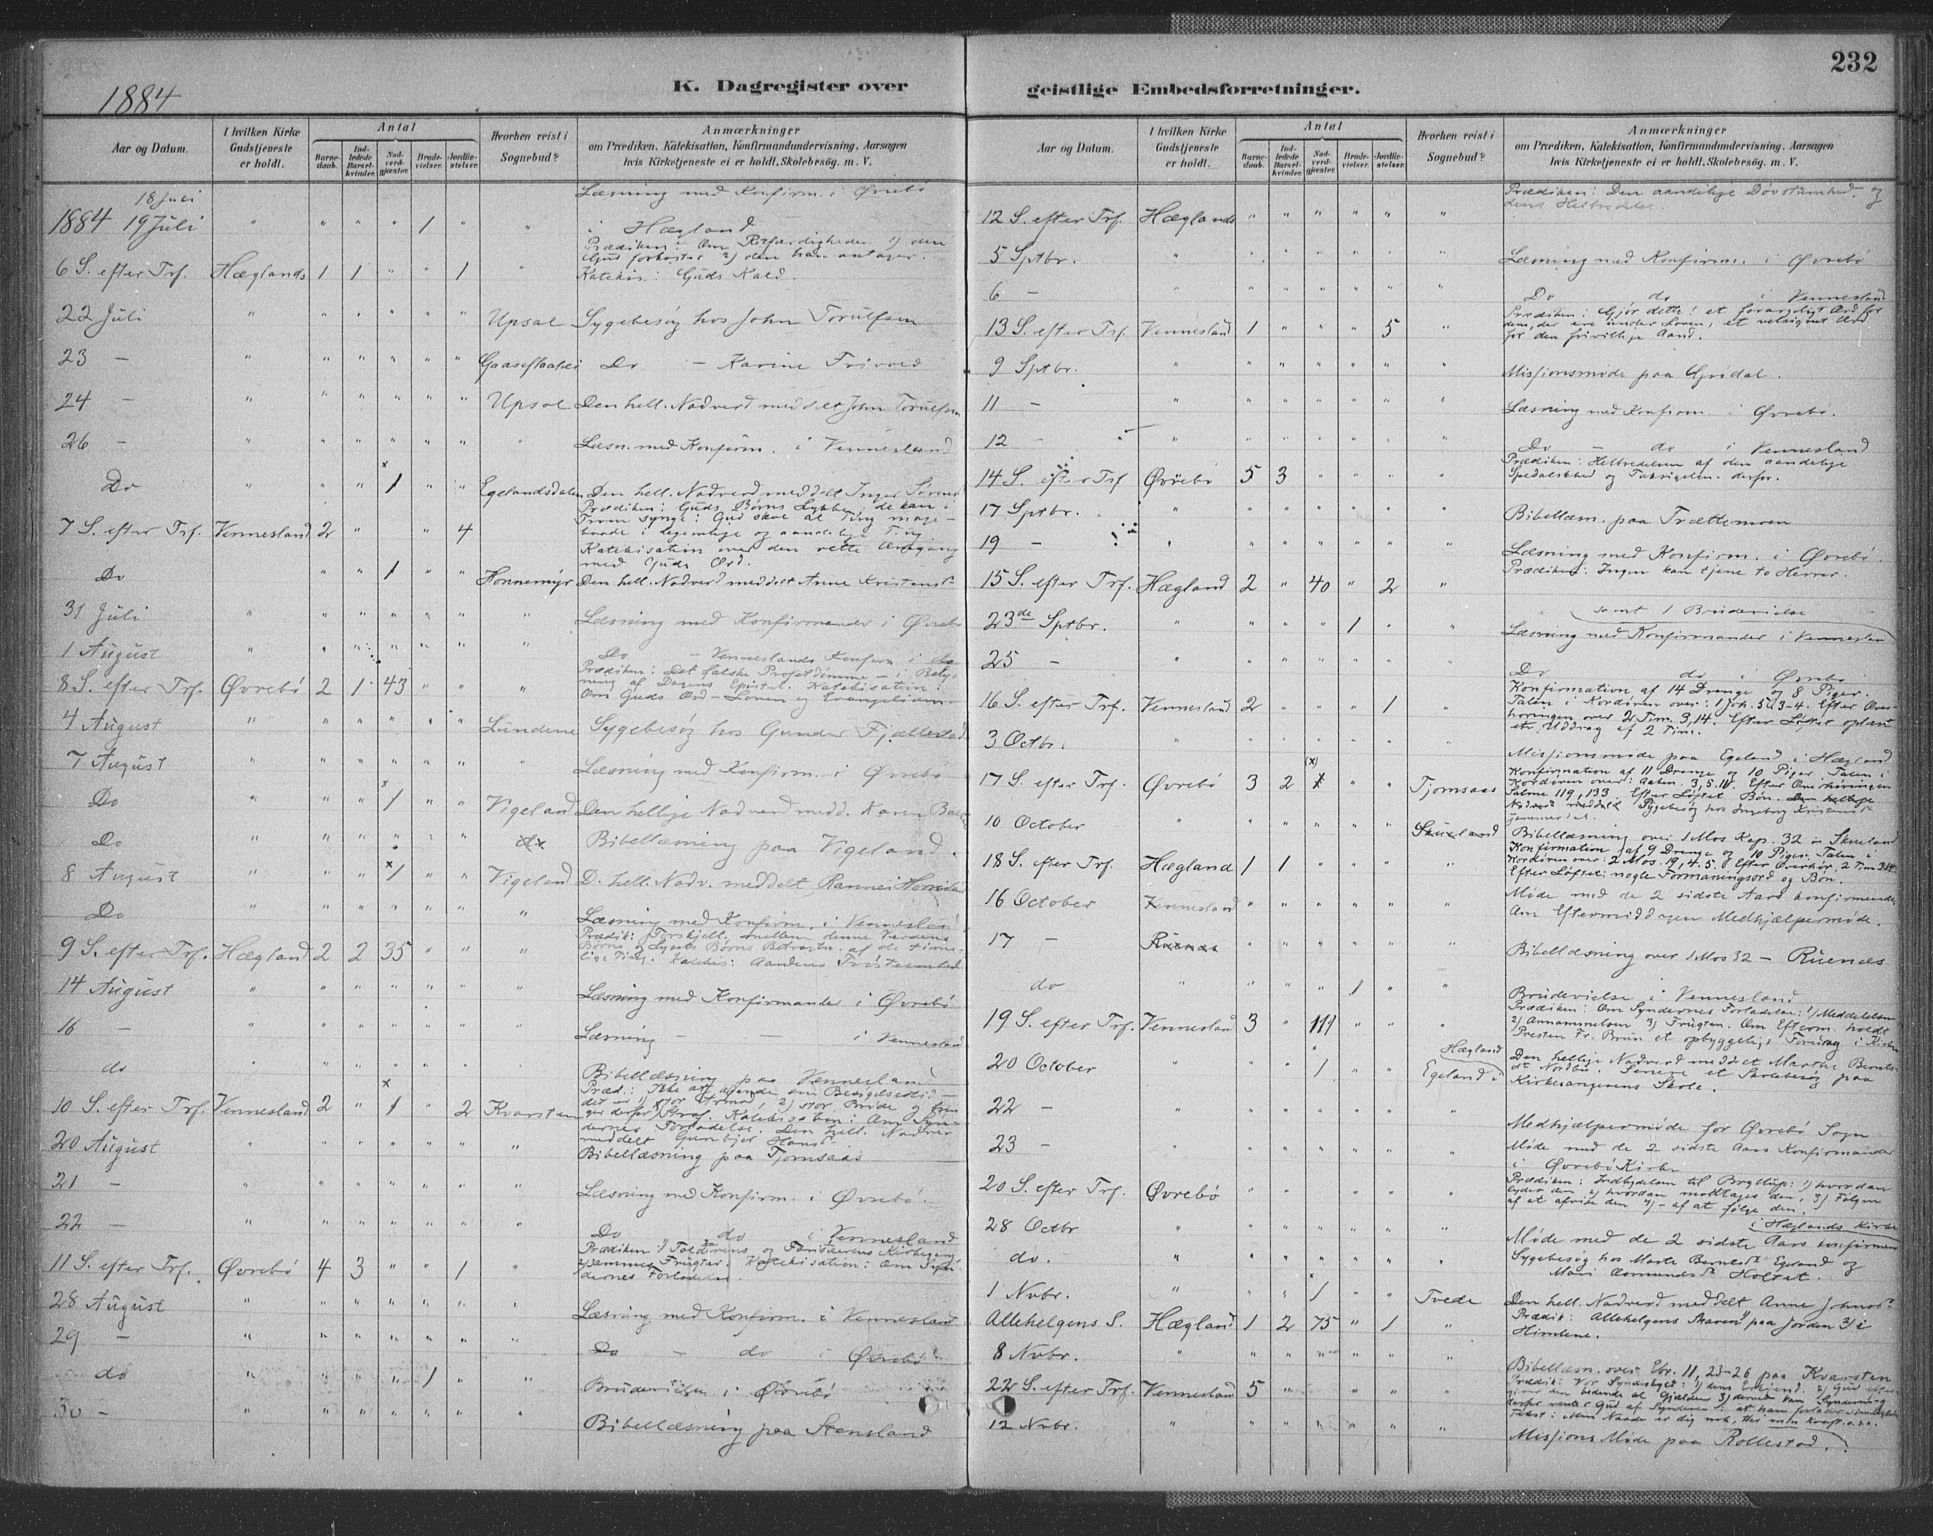 232
K. Dagregister over geistlige Embedsforretninger.
1884
Aar og Datum. I hvilken Kirke Gudstjeneste er holdt. Antal Barnedaab. Indledede Barselkvinder. Nadverdgjæster. Brudevielser. Jordfæstelser. Hvorhen reist i Sognebud? Anmærkninger om Prædiken, Katekisation, Konfirmandundervisning, Aarsagen hvis Kirketjeneste ei er holdt, Skolebesøg. m. V.
18 Juli Læsning med Konfirm. i Øvrebø
1884 19 Juli " " " " 1 " " i Hægland
Prædiken: Om Retfærdigheden 1) den
Gud forkaster 2) den han antager.
6 S. efter Trf. Hæglands 1 1 " " 1 " Katekis: Guds Kald.
22 Juli " " " " " " Upsal Sygebesøg hos John Torulfsen
23 — " " " " " " Do — Karine
24 — " " " " " " Upsal Den hell. Nadverd meddelt John Torulfsen
26 — " " " " " " " Læsn. med Konfirm. i Vennesland
Do " " " x 1 " " Egelandsdalen Den hell. Nadverd meddelt Inger
Prædiken: Guds Børns Lykke, de kan i
7 S. efter Trf. Vennesland 2 " " " 4 Troen synge: Gud skal al Ting mage —
baade i legemlige og aandelige Ting
Katekisation over den rette Omgang
med Guds Ord.
Do " " 1 " " Honnemyr Den hell. Nadverd meddelt Anne Kristensdr
31 Juli " " " " " " " Læsning med Konfirmander i Øvrebø
1 August " " " " " " " Do — Venneslands Konfirm i do
8 S. efter Trf. Øvrebø 2 1 43 " " " Prædiken: Det falske Profetdømme — i Belys
ning af Dagens Epistel. Katekisation:
Om Guds Ord — Loven og Evangeliet
4 August " " " " " " Lundene Sygebesøg hos Gunder Fjellestad
7 August Læsning med Konfirm. i Øvrebø
Do " " " x 1 " " Vigeland Den hellige Nadverd medd. Karen
Do " " " " " " do Bibellæsning paa Vigeland.
8 August " " " x 1 " " Vigeland D. hell. Nadv. meddelt
Do " " " " " " " Læsning med Konfirm. i Vennesland
9 S. efter Trf. Hægland 2 2 35 " " " Prædik: Forskjell. mellem denne Verdens
Børns og Lysets Børns Betragtn. af de time-
lige Ting. Katekis: Aandens
14 August " " " " " " " Læsning med Konfirmander i Øvrebø
16 — " " " " " " " Læsning — — i Vennesland
do " " " " " " " Bibellæsning paa Vennesland
10 S. efter Trf. Vennesland 2 " x 1 " 2 Kvarsten Præd: Ikke
det — 1) stor 2) stor Brøde og
derfor Straf. Katekisation: Om Syn-
dernes Forladelse. Den hell. Nadver
meddelt Gunbjør Hansdr
20 August " " " " " " " Bibellæsning paa Tjomsaas
21 — " " " " " " " Læsning med Konfirm. i Øvrebø.
22 — " " " " " " " Do do i Vennesland
11 S. efter Trf. Øvrebø 4 3 " " 1 " Prædiken: 1) Tolderens og Farisæerens Kirkegang
2) sammes Frugter. Katekisation: Om Syn-
dernes Forladelse.
28 August " " " " " " " Læsning med Konfirm. i Vennesland
29 — " " " " " " " Do — do i Øvrebø
do " " " " 1 " " Brudevielse i Øvrebø
30 — " " " " " " " Bibellæsning paa Stensland
Aar og Datum. I hvilken Kirke Gudstjeneste er holdt. Antal Barnedaab. Indledede Barselkvinder. Nadverdgjæster. Brudevielser. Jordfæstelser. Hvorhen reist i Sognebud? Anmærkninger om Prædiken, Katekisation, Konfirmandundervisning, Aarsagen hvis Kirketjeneste ei er holdt, Skolebesøg. m. V.
12 S. efter Trf. Hæglands " " " " " " Prædiken: Den aandelige Døvstumhed og
dens Helbredelse.
5 Sptbr. " " " " " " " Læsning med Konfirm. i Øvrebø
6 — " Do do i Vennesland
13 S. efter Trf. Vennesland 1 " " " 5 " Prædiken: Gjør dette! et Ord for
dem, der ere under Loven, et velsignet Ord
for den frivillige Aand.
9 Sptbr. " " " " " " " Missionsmøde paa Grødal.
11 — " " " " " " " Læsning med Konfirm. i Øvrebø.
12 — " " " " " " " Do — do i Vennesland
14 S. efter Trf Øvrebø 5 3 " " " " Prædiken: Helbredelsen af den aandelige
Spedalskhed og Taksigelsen derfor.
17 Sptbr. " " " " " " " Bibellæsn. paa Trættemoen
19 — " " " " " " " Læsning med Konfirm. i Øvrebø.
15 S. efter Trf. Hægland 2 " 40 " 2 " Prædiken: Ingen kan tjene to Herrer.
samt 1 Brudevielse
23de Sptbr. " " " " 1 " " Læsning med Konfirmander i Vennesland
25 — " " " " " " " Do do i Øvrebø
16 S. efter Trf. Vennesland 2 " " " 1 " Konfirmation af 14 Drenge og 8 Piger.
Talen i Kordøren over: 1 Joh. 5, 3-4. Efter Over-
høringen over 2 Tim. 3,14. Efter Løftet oplæst
et Uddrag af 2 Tim.
3 Octbr. " " " " " " " Missionsmøde paa Egeland i Hægland
17 S. efter Trf. Øvrebø 3 2 (x) " " Tjomsaas Konfirmation af 11 Drenge og 10 Piger. Talen i
Kordøren over: Aaben. 3,5.14. Efter Overhøringen
Salme 119, 133. Efter Løftet Bøn. Den hellige
Nadverd meddelt Sygebesøg hos Ingeborg Kristensdr
10 October " " " " " " Skueland Bibellæsning over 1 Mos Kap. 32 paa Skueland
18 S. efter Trf. Hægland 1 1 " " " " Konfirmation af 9 Drenge og 10 Piger. Talen i
Kordøren over: 2 Mos. 19, 4.5. Efter Overhør. 2 Tim 3,14
Efter Løftet: nogle Formaningsord og Bøn.
16 October Vennesland " " " " " " Møde med de 2 sidste Aars konfirmerede
Om Eftermiddagen Medhjælpermøde.
17 — Ruenes " " " " " " Bibellæsning over 1 Mos 32 — Ruenes
do " " " " 1 " " Brudevielse i Vennesland
19 S. efter Trf. Vennesland 3 " 111 " " " Prædiken: Om Syndernes Forladelse: 1) Meddelelsen
2) Annammelsen 3) Frugten. Om Efterm. holdt
Presten Fr. Brun et opbyggeligt Foredrag i Kirken
20 October " " " x 1 " " Egeland i Hægland Den hellige Nadverd meddelt Marthe Bernts-
dr Nordbø. Senere et Skolebesøg paa
Kirkesangerens Skole.
22 — " " " " " " " Medhjælpermøde for Øvrebø Sogn
23 — " " " " " " " Møde med de 2 sidste Aars Konfirmander
i Øvrebø Kirke
20 S. efter Trf. Øvrebø " " " " " " Prædiken: Indbydelsen til Bryllup: 1) hvordan
lyder den 2) hvordan modtages den, 3) Følgen
af at afvise den 4) — af at følge den.
28 Octbr " " " " " " " Møde med de 2 sidste Aars konfirmer i Hæglands Kirke
do. " " " " " " " Sygebesøg hos Marte Berntsdr Egeland og
Mari Aamundsdr Holtet.
1 Nvbr. " " " x 1 " " Tvede Den hell. Nadverd meddelt Anne Johnsdr
Allehelgens S. Hægland 1 2 75 " 1 " Prædik: Allehelgens Skaren paa Jorden i
Himlene.
8 Nvbr. " " " " " " " Bibellæsn. over Ebr. 11, 23-26 paa Kvarsten
22 S. efter Trf. Vennesland 5 " " " " " Prædik: Vor Syndeskyld: 1)
Tekst: Min Naade er dig nok, thi min Kraft o.s.v.
12 Nvbr. " " " " " " " Missions Møde paa Rollestad.